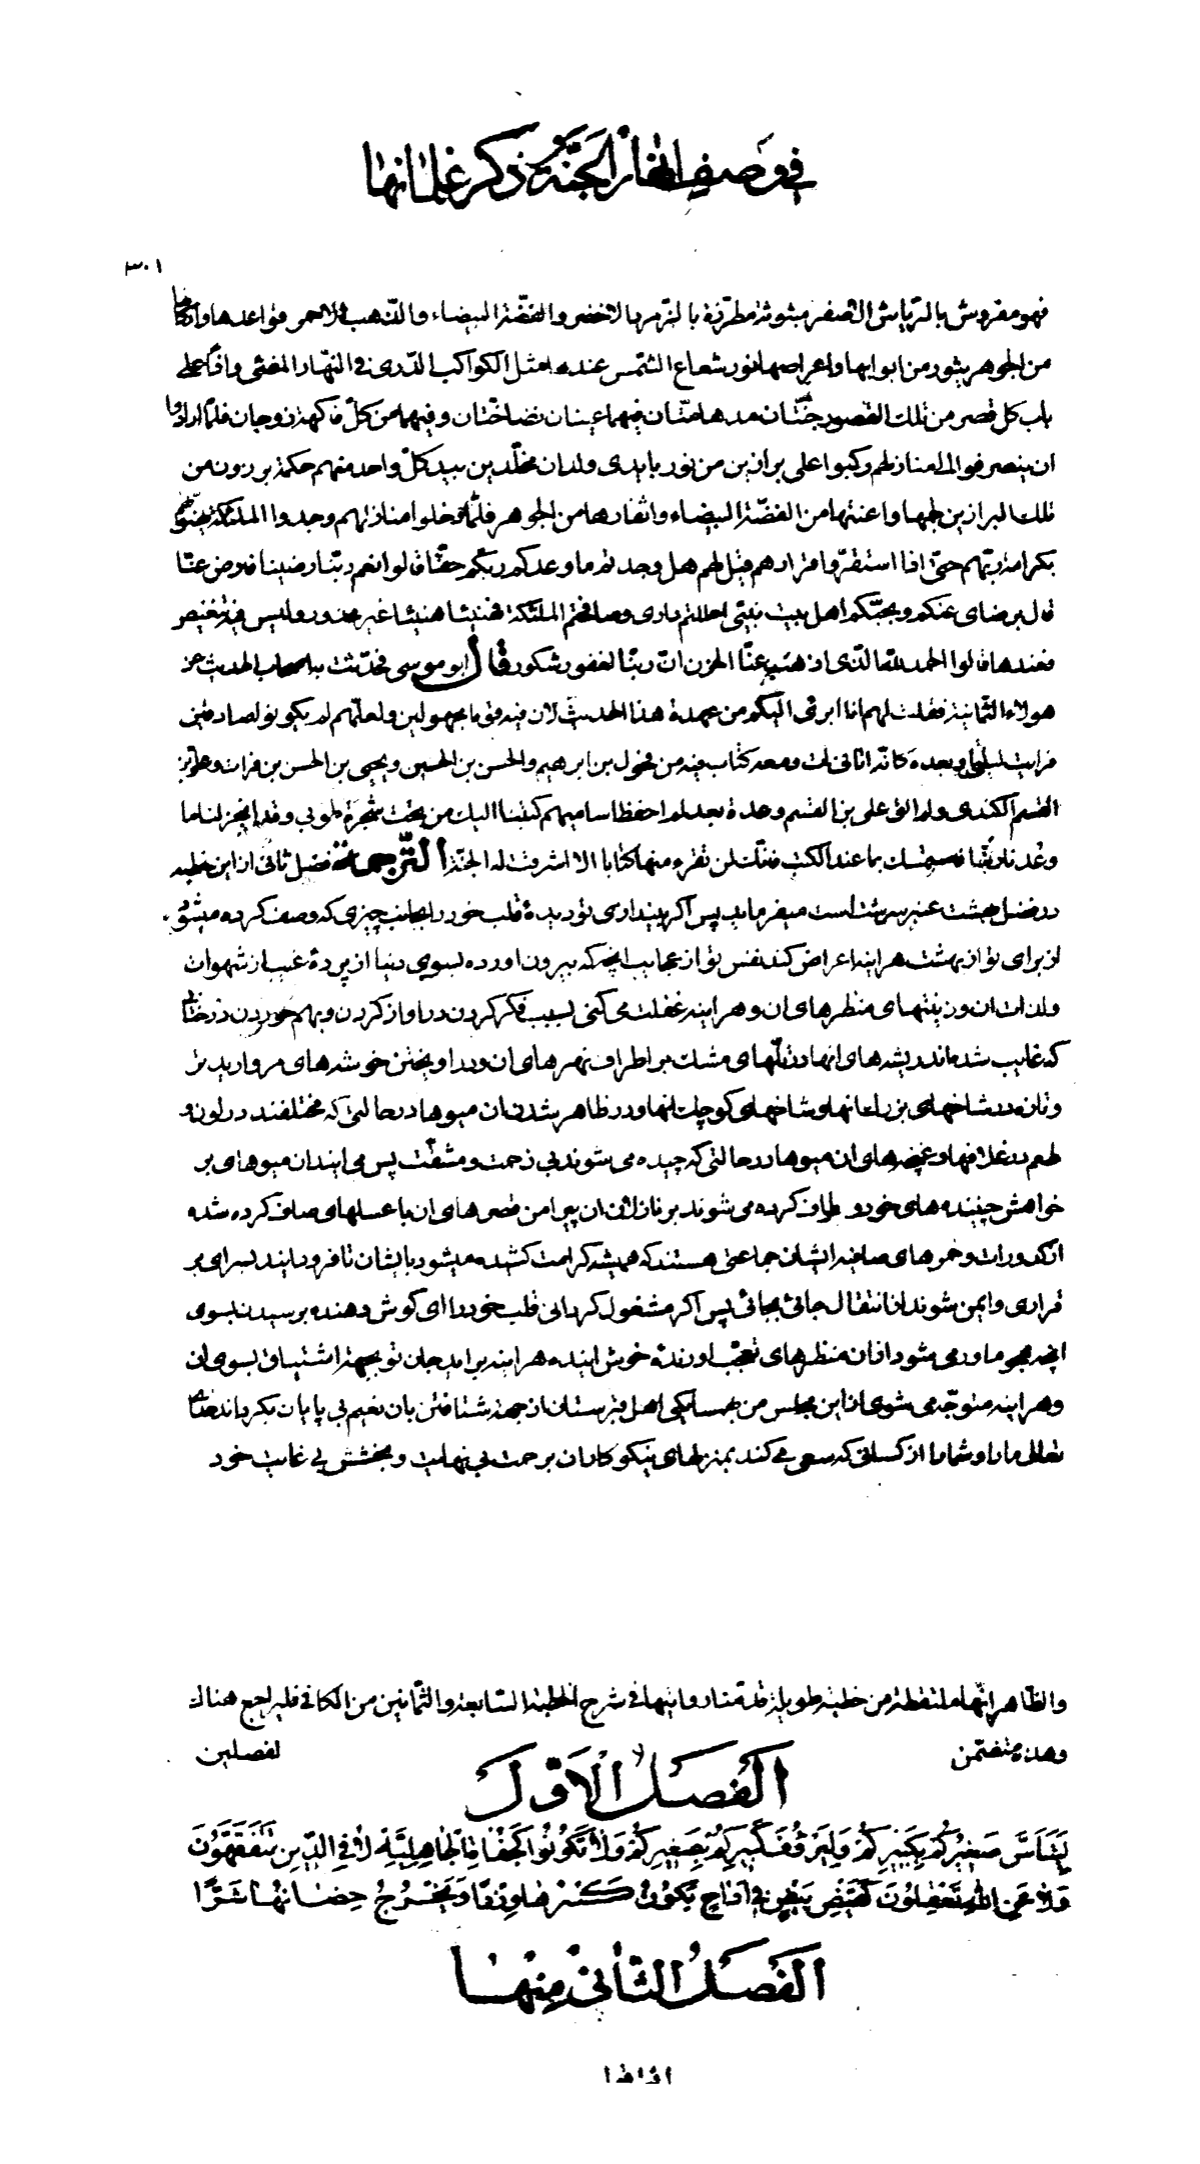 في وصف اثمار الجنّة و ذكر غلمانها
٣٠١
فهو مفروش بالرّياش الاصفر مبثوثة مطرّزة بالزمرد الاخضر والفضّة البيضاء والذّهب الاحمر قواعدها واركانها
من الجوهر يثور من ابوابها واعراصها نور شعاع الشّمس عنده مثل الكواكب الدّرى في النّهار المضئى واذا على
باب كل قصر من تلك القصور جنّتان مدهامّتان فيهما عينان نضّاختان وفيهما من كلّ فاكهة زوجان فلمّا ارادوا
ان ينصرفوا الى منازلهم ركبوا على براذين من نور بايدى ولدان مخلّدين بيد كلّ واحد منهم حكمة برذون من
تلك البراذين لجمها واعنتها من الفضّة البيضاء واثفارها من الجوهر فلمّا دخلوا منازلهم وجدوا الملئكة يهنّونهم
بكرامة ربّهم حتى اذا استقرّوا قرارهم قيل لهم هل وجدتم ما وعدكم ربّكم حقّا قالوا نعم ربّنا رضينا فارض عنّا
قال برضاى عنكم وبحبّكم اهل بيت نبيّى احللتم دارى وصافحتم الملئكة فهنيئا هنيئا غير محذور وليس فيه تنغيص
فعندها قالوا الحمد للّه الّذى اذهب عنّا الحزن انّ ربّنا لغفور شكور قال ابو موسى فحدّثت به اصحاب الحديث عن
هولاء الثّمانية فقلت لهم انا ابرئ اليكم من عهدة هذا الحديث لان فيه قوما مجهولين ولعلّهم لم يكونوا صادقين
فرايت ليلتى او بعده كانّه اتانى آت ومعه كتاب فيه من مخول بن ابرهيم والحسن بن الحسين ويحيى بن الحسن بن فرات وعلى بن
القسم الكندى ولم الق على بن القسم وعدة بعد لم احفظ اساميهم كتبنا اليك من تحت شجرة طوبى وقد انجز لنا ما
وعدنا ربّنا فاستمسك بما عندك الكتب فقلت لن تقرء منها كتابا الا اشرقت له الجنّة الترجمة فصل ثانى از اين خطبه
در فضل بهشت عنبر سرشت است ميفرمايد پس اكر بيندازى تو ديدۀ قلب خود را بجانب چيزى كه وصف كرده ميشود
از براى تو از بهشت هراينه اعراض كند نفس تو از عجايب انچه كه بيرون اورده بسوى دنيا از پردۀ غيب از شهوات
ولذات ان و زينتهاى منظرهاى ان وهراينه غفلت مى كنى بسبب فكر كردن در اواز كردن وبهم خوردن درختانى
كه غايب شده اند ريشه هاى انها در تلّهاى مشك بر اطراف نهرهاى ان ودر اويختن خوشه هاى مرواريد تر
وتازه در شاخهاى بزرك انها وشاخهاى كوچك انها ودر ظاهر شدن ان ميوها در حالتى كه مختلفند در لون و
طعم در غلافها وغنچه هاى ان ميوها در حالتى كه چيده مى شوند بى زحمت ومشقّت پس مى ايند ان ميوهاى بر
خواهش چيننده هاى خود و طواف كرده مى شوند بر نازلان ان پيرامن قصرهاى ان با عسلهاى صاف كرده شده
از كدورات وخمرهاى صافيه ايشان جماعتى هستند كه هميشه كرامت كشيده ميشود بايشان تا فرود ايند بسراى بر
قرارى وايمن شوند از انتقال جائى بجائى پس اكر مشغول كردانى قلب خود را اى كوش دهنده برسيدن بسوى
انچه هجوم اور مى شود از ان منظرهاى تعجّب اورنده خوش اينده هراينه برايد جان تو بجهة اشتياق بسوى ان
وهراينه متوجّه مى شوى از اين مجلس من بهمسايكى اهل قبرستان از جهة شتافتن بان نعيم بى پايان بكرداند خداى
تعالى ما را وشما را از كسانى كه سعى مى كند بمنزلهاى نيكوكاران برحمت بى نهايت وبخشش بى غايت خود
والظّاهر انّها ملتقطة من خطبة طويلة قدّمنا روايتها في شرح الخطبة السّابعة والثّمانين من الكافي فليراجع هناك
وهذه متضمّن لفصلين
الفصل الاوّل
لِيَتَأَسَّ صَغِيرُكُمْ بِكَبِيرِكُمْ وَلْيَرْؤُفْ كَبِيرُكُمْ بِصَغِيرِكُمْ وَلَا تَكُونُوا كَجُفَاةِ الْجَاهِلِيَّةِ لَا فِي الدِّينِ تَتَفَقَّهُونَ
وَلَا عَنِ اللهِ تَعْقِلُونَ كَقَيْضِ بَيْضٍ فِي أَدَاحٍ يَكُونُ كَسْرُهَا وِزْرًا وَيُخْرِجُ حِضَانُهَا شَرًّا
الفصل الثاني منها